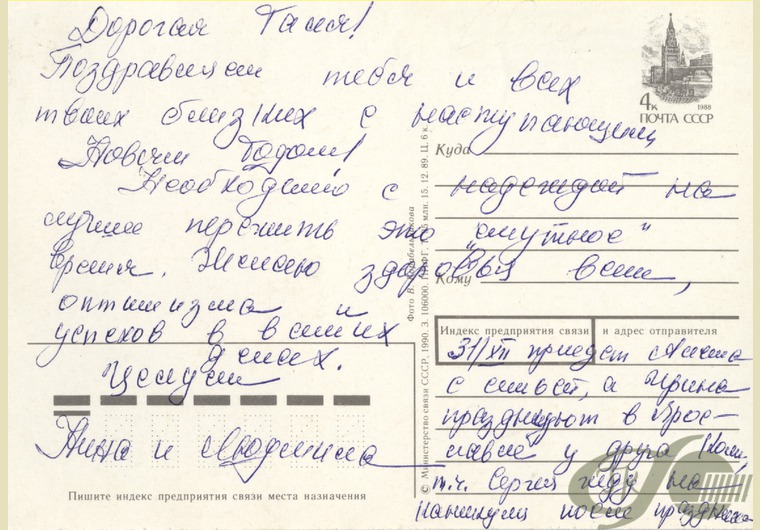 Дорогая Таня!
Поздравляем тебя и всех
твоих близких с наступающим
Новым Годом!
Необходимо с надеждой на
лучшее пережить это "смутное"
время. Желаю здоровья всем,
оптимизма и
успехов в ваших
делах.
Целуем
Анна и Людмила
4к
1988
ПОЧТА СССР
Куда
Кому
Индекс предприятия связи и адрес отправителя
31/XII приедет
с семьей, а Ирина
празднуют в Яро-
славле у друга Коли,
т.ч. Сергей жду на
каникулы после праздника
Пишите индекс предприятия связи места назначения
© Министерство связи СССР. 1990. З. 106000. ППФГ. млн. 15. 12. 89. Ц. 6 к.
Фото В.